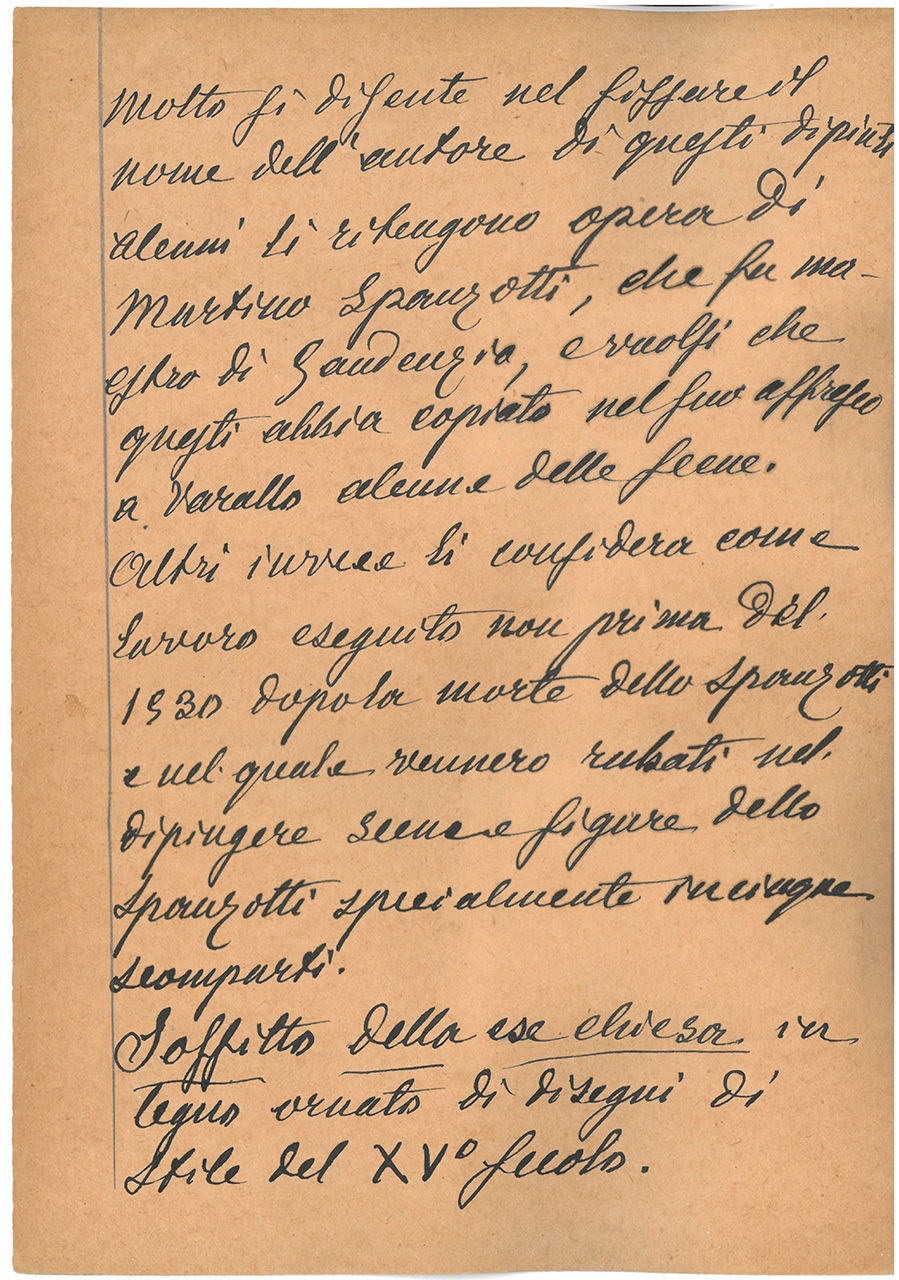 Molto si disente nel fissare il
nome dell'autore di questi dipinti
alcuni li ritengono opera di
Martino Spanzotti, che fu ma-
estro di Gaudenzio, e vuolsi che
questi abbia copiato nel suo affresco
a Varallo alcune delle scene.
Altri invece li considera come
lavoro eseguito non prima del
1530 dopo la morte dello Spanzotti
e nel quale vennero rubati nel
dipingere scene e figure dello
Spanzotti specialmente in cinque
scomparti.
Soffitto della ese chiesa in
legno ornato di disegni di
stile del XVº secolo.